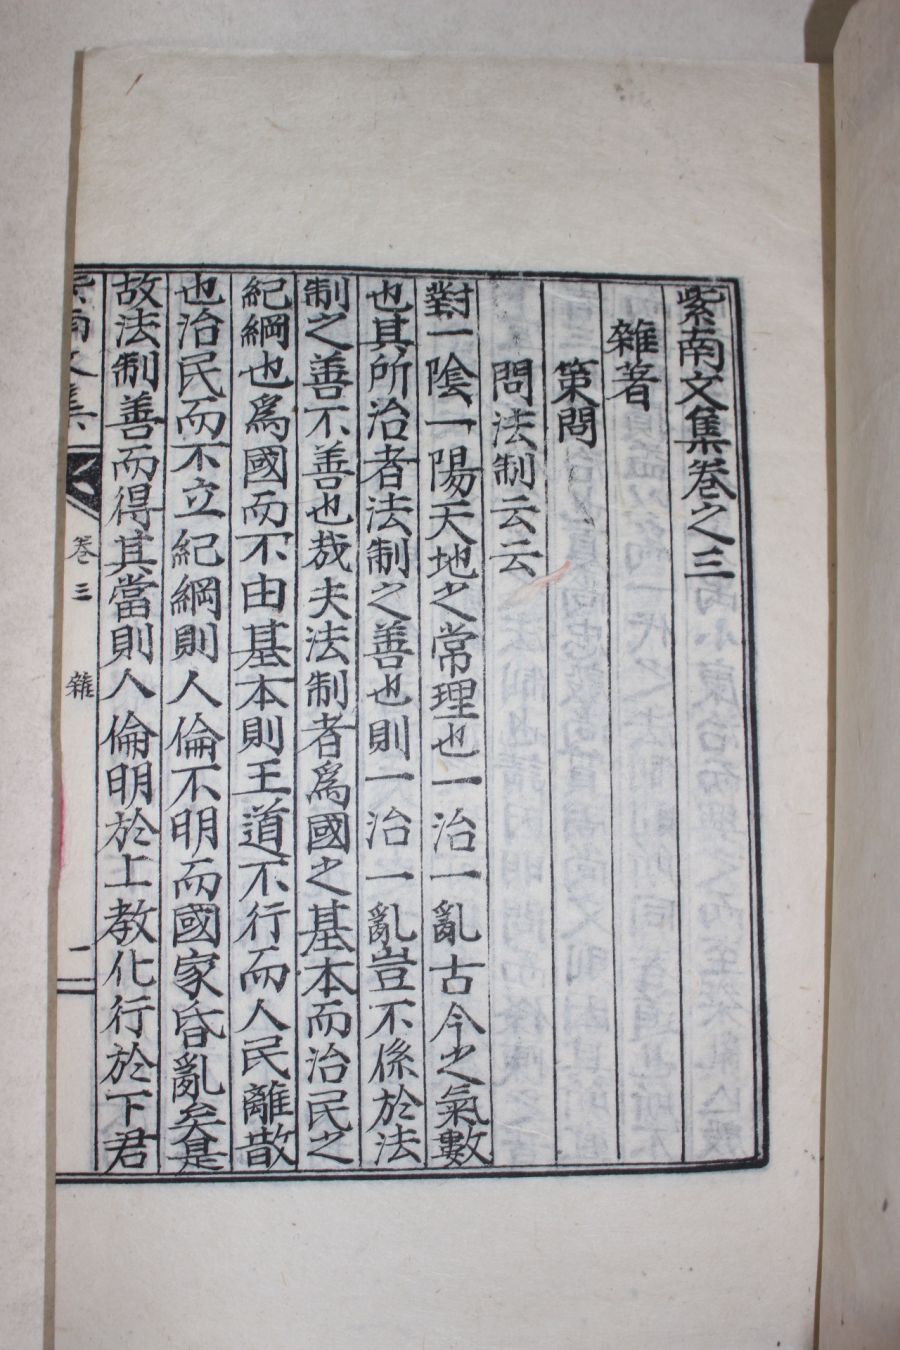 紫南文集卷之三
雜著
策問
問法制云云
對一陰一陽天地之常理也一治一亂古今之氣數
也其所治者法制之善也則一治一亂豈不係於法
制之善不善也哉夫法制者爲國之基本而治民之
紀綱也爲國而不由基本則王道不行而人民離散
也治民而不立紀綱則人倫不明而國家昏亂矣是
故法制善而得其當則人倫明於上教化行於下君
紫南文集 卷三 雜 一